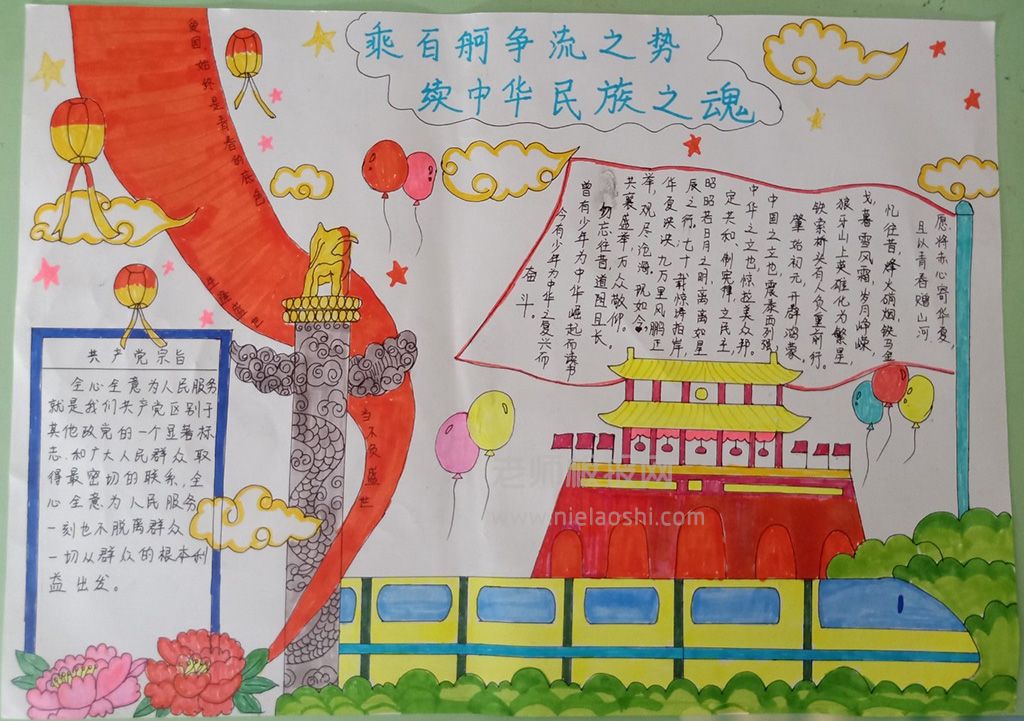 乘百舸争流之势
续中华民族之魂
爱国,始终是青春的底色
当不负盛世
愿将赤心寄华夏,
且从青春赠山河
忆往昔,烽火硝烟,铁马金
戈,暮雪风霜,岁月峥嵘,
狼牙山上英雄化为繁星,
铁索桥头有人负重前行。
肇始初元,开辟鸿蒙,
中国之立也,震泰西列强,
中华之立也,惊拉美众邦。
定共和、制宪律,立民主,
昭昭若日月之明,离离如星
辰之行,七十载惊涛拍岸,
华夏泱泱,九万里风鹏正
举,观尽沧海,现如今,
共襄盛举,万众敬仰。
勿忘往昔,道阻且长,
曾有少年为中华崛起而读书
今有少年为中华之复兴而
奋斗。
共产党宗旨
全心全意为人民服务
就是我们共产党区别于
其他政党的一个显著标
志,和广大人民群众取
得最密切的联系,全
心全意为人民服务
一刻也不脱离群众
一切从群众的根本利
益出发。
老师板报网
www.nielaoshi.com